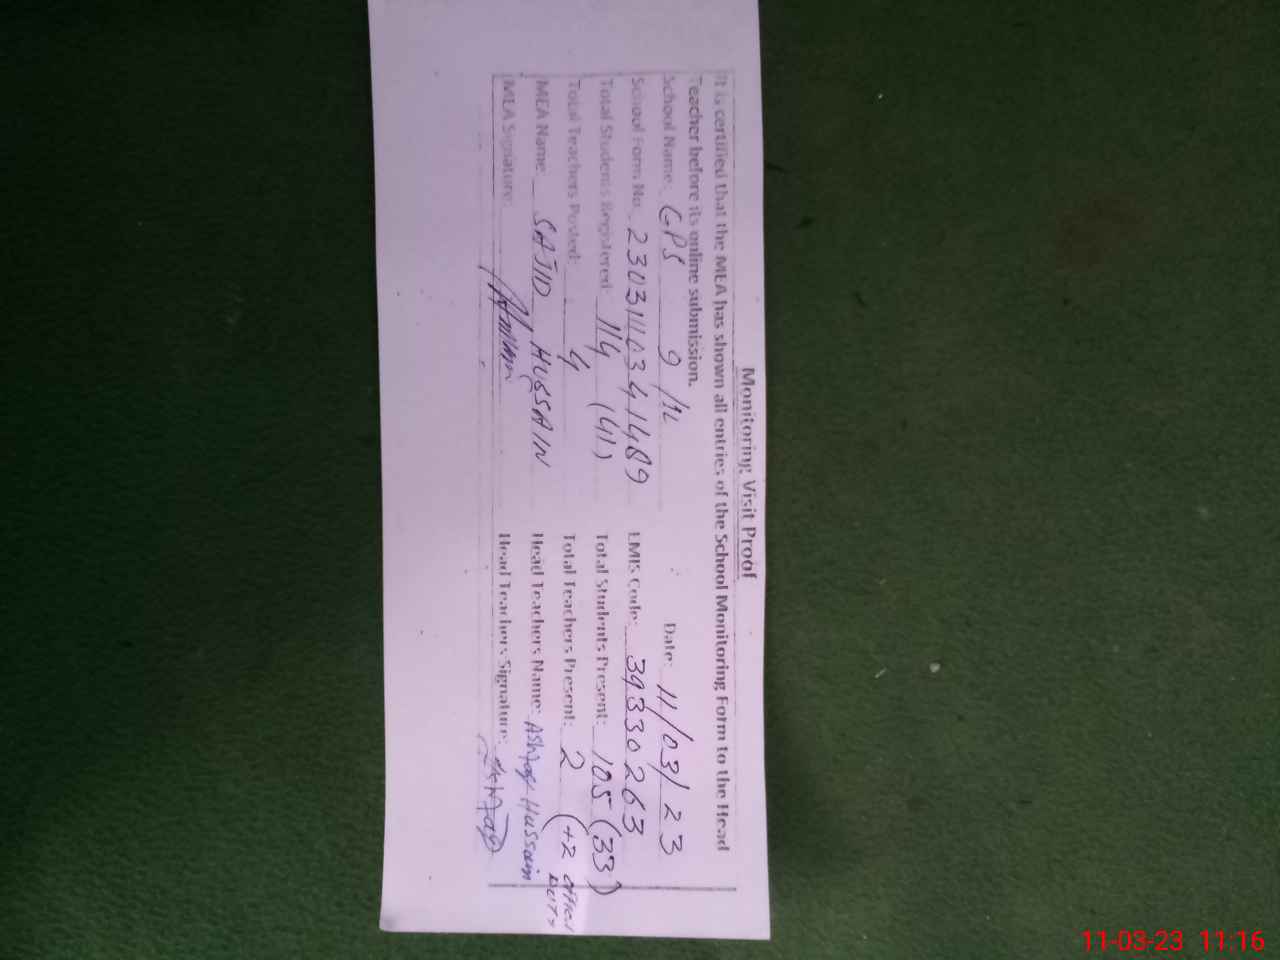 Monitoring Visit Proof
It is certified that the MEA has shown all entries of the School Monitoring Form to the Head
Teacher before its online submission.
School Name: GPS 9/1L Date: 11/03/23
School Form No. 2303110341489 EMIS Code: 39330263
Total Students Registered: 114 (41) Total Students Present: 105 (33)
Total Teachers Posted: 4 Total Teachers Present: 2 (+2 OFFICIAL DUTY
MEA Name: SAJID HUSSAIN Head Teachers Name: Ashfaq Hussain
MEA Signature: Head Teachers Signature: Ashfaq
11-03-23 11:16